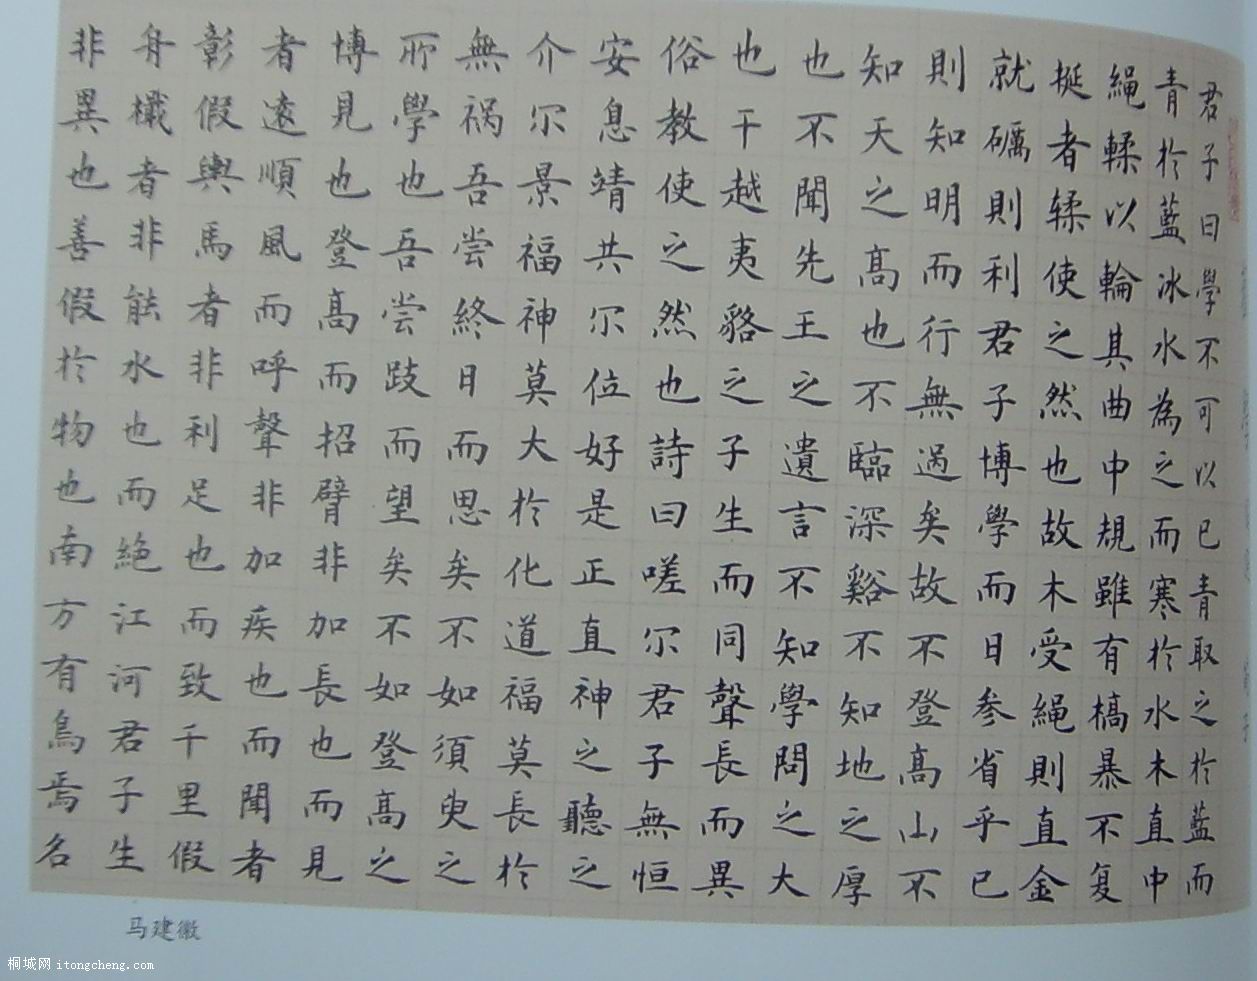 君子曰學不可以已青取之於藍而
青於藍冰水為之而寒於水木直中
繩輮以輪其曲中規雖有槁暴不复
挺者輮使之然也故木受繩則直金
就礪則利君子博學而日参省乎已
則知明而行無過矣故不登高山不
知天之高也不臨深谿不知地之厚
也不聞先王之遺言不知學問之大
也干越夷貉之子生而同聲長而異
俗教使之然也詩曰嗟尔君子無恒
安息靖共尔位好是正直神之聽之
介尔景福神莫大於化道福莫長於
無祸吾尝終日而思矣不如須臾之
所學也吾尝跂而望矣不如登高之
博見也登高而招臂非加長也而見
者遠順風而呼聲非加疾也而聞者
彰假輿馬者非利足也而致千里假
舟檝者非能水也而絶江河君子生
非異也善假於物也南方有鳥焉名
马建徽
桐城网 itongcheng.com